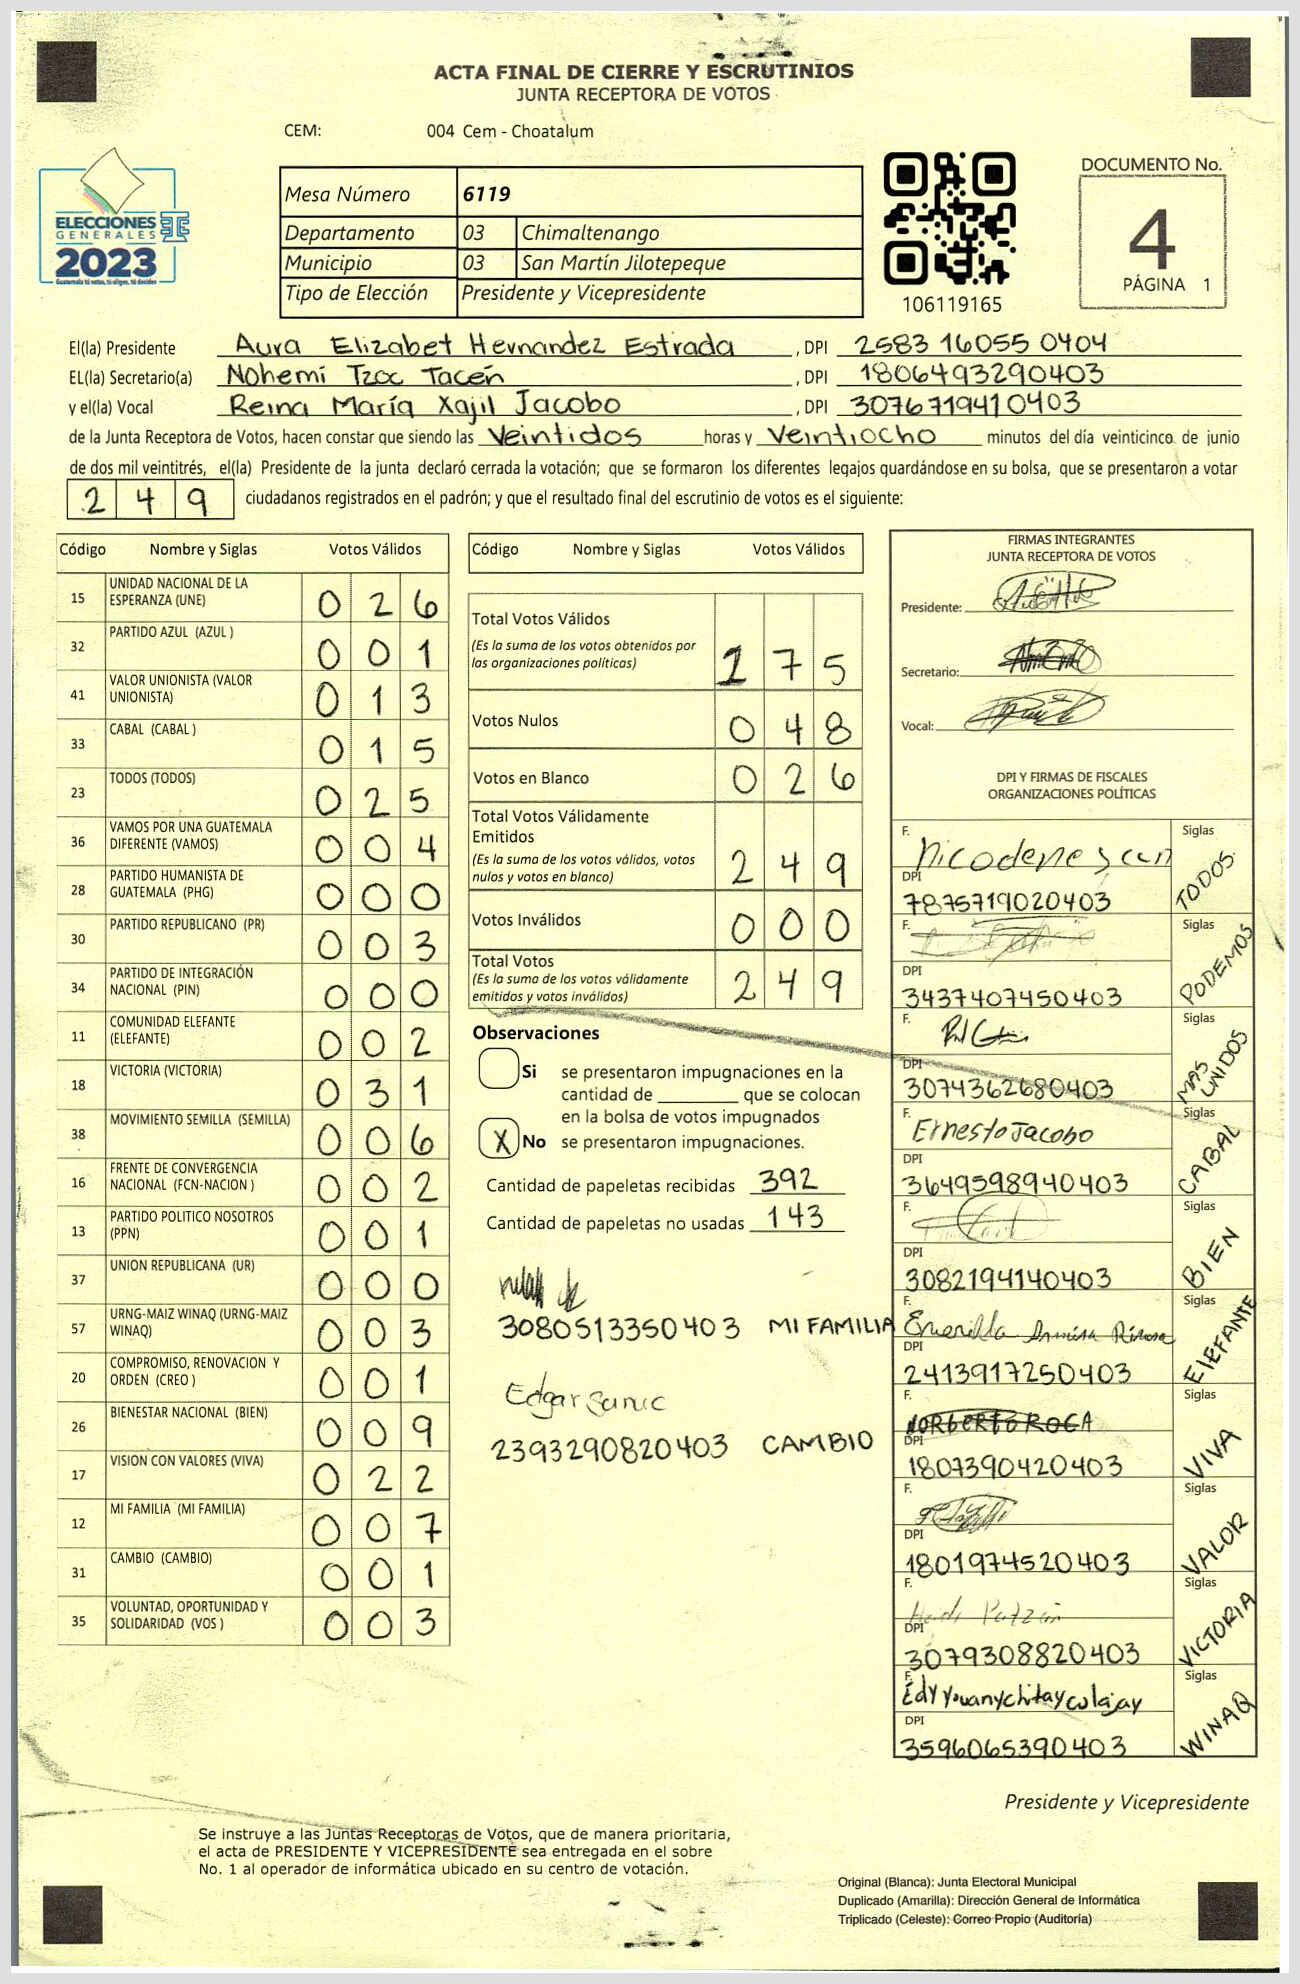 ACTA FINAL DE CIERRE Y ESCRUTINIOS
JUNTA RECEPTORA DE VOTOS
CEM: 004 Cem - Choatalum
ELECCIONES
GENERALES
2023
Guatemala tú votas, tú eliges, tú decides
Mesa Número 6119
Departamento 03 Chimaltenango
Municipio 03 San Martín Jilotepeque
Tipo de Elección Presidente y Vicepresidente
106119165
DOCUMENTO No.
4
PÁGINA 1
El(la) Presidente Aura Elizabet Hernandez Estrada , DPI 2583 16055 0404
EL(la) Secretario(a) Nohemi Tzoc Taceń , DPI 1806493290403
y el(la) Vocal Reina María Xajil Jacobo , DPI 3076719410403
de la Junta Receptora de Votos, hacen constar que siendo las Veintidos horas y Veintiocho minutos del día veinticinco de junio
de dos mil veintitrés, el(la) Presidente de la junta declaró cerrada la votación; que se formaron los diferentes legajos guardándose en su bolsa, que se presentaron a votar
249 ciudadanos registrados en el padrón; y que el resultado final del escrutinio de votos es el siguiente:
Código Nombre y Siglas Votos Válidos
15 UNIDAD NACIONAL DE LA ESPERANZA (UNE) 026
32 PARTIDO AZUL (AZUL ) 001
41 VALOR UNIONISTA (VALOR UNIONISTA) 013
33 CABAL (CABAL ) 015
23 TODOS (TODOS) 025
36 VAMOS POR UNA GUATEMALA DIFERENTE (VAMOS) 004
28 PARTIDO HUMANISTA DE GUATEMALA (PHG) 000
30 PARTIDO REPUBLICANO (PR) 003
34 PARTIDO DE INTEGRACIÓN NACIONAL (PIN) 000
11 COMUNIDAD ELEFANTE (ELEFANTE) 002
18 VICTORIA (VICTORIA) 031
38 MOVIMIENTO SEMILLA (SEMILLA) 006
16 FRENTE DE CONVERGENCIA NACIONAL (FCN-NACION ) 002
13 PARTIDO POLITICO NOSOTROS (PPN) 001
37 UNION REPUBLICANA (UR) 000
57 URNG-MAIZ WINAQ (URNG-MAIZ WINAQ) 003
20 COMPROMISO, RENOVACION Y ORDEN (CREO ) 001
26 BIENESTAR NACIONAL (BIEN) 009
17 VISION CON VALORES (VIVA) 022
12 MI FAMILIA (MI FAMILIA) 007
31 CAMBIO (CAMBIO) 001
35 VOLUNTAD, OPORTUNIDAD Y SOLIDARIDAD (VOS ) 003
Código Nombre y Siglas Votos Válidos
Total Votos Válidos
(Es la suma de los votos obtenidos por
las organizaciones políticas) 175
Votos Nulos 048
Votos en Blanco 026
Total Votos Válidamente
Emitidos
(Es la suma de los votos válidos, votos
nulos y votos en blanco) 249
Votos Inválidos 000
Total Votos
(Es la suma de los votos válidamente
emitidos y votos inválidos) 249
Observaciones
Si se presentaron impugnaciones en la
cantidad de ________ que se colocan
en la bolsa de votos impugnados
X No se presentaron impugnaciones.
Cantidad de papeletas recibidas 392
Cantidad de papeletas no usadas 143
3080513350403 MI FAMILIA
Edgar Sanic
2393290820403 CAMBIO
FIRMAS INTEGRANTES
JUNTA RECEPTORA DE VOTOS
Presidente:
Secretario:
Vocal:
DPI Y FIRMAS DE FISCALES
ORGANIZACIONES POLÍTICAS
F. Siglas
DPI
7875719020403 TODOS
F. Siglas
DPI
3437407450403 PODEMOS
F. Siglas
DPI
3074362680403 MAS UNIDOS
F. Ernesto Jacobo Siglas
DPI
3649598940403 CABAL
F. Siglas
DPI
3082194140403 BIEN
F. Siglas
DPI
2413917250403 ElEFANTE
F. NORBERTO ROCA Siglas
DPI
1807390420403 VIVA
F. Siglas
DPI
1801974520403 VALOR
F. Siglas
DPI
3079308820403 VICTORIA
F. Siglas
DPI
3596065390403 WINAQ
Presidente y Vicepresidente
Se instruye a las Juntas Receptoras de Votos, que de manera prioritaria,
el acta de PRESIDENTE Y VICEPRESIDENTE sea entregada en el sobre
No. 1 al operador de informática ubicado en su centro de votación.
Original (Blanca): Junta Electoral Municipal
Duplicado (Amarilla): Dirección General de Informática
Triplicado (Celeste): Correo Propio (Auditoría)